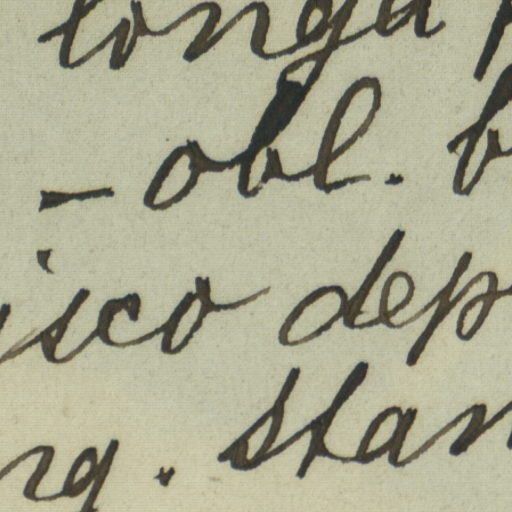 longa
- obl. b
isco dep
rg. stan